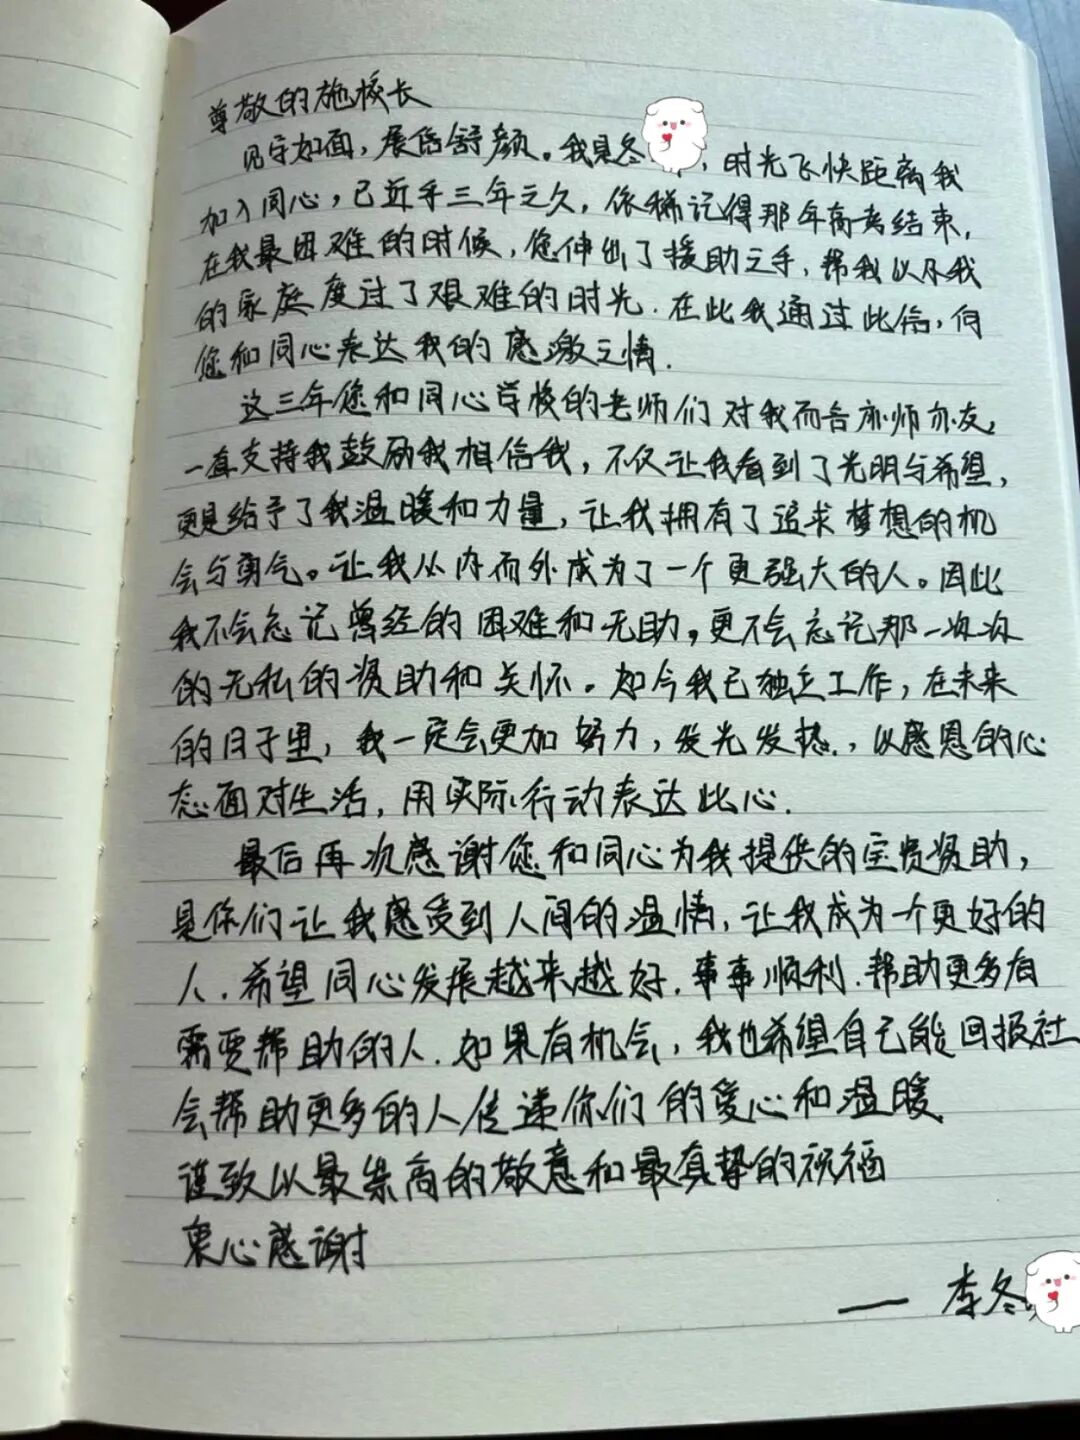 尊敬的施校长
见字如面，展信舒颜。我是冬，时光飞快距离我
加入同心，已近乎三年之久，依稀记得那年高考结束，
在我最困难的时候，您伸出了援助之手，帮我以及我
的家庭度过了艰难的时光．在此我通过此信，向
您和同心表达我的感激之情．
这三年您和同心学校的老师们对我而言亦师亦友，
一直支持我鼓励我相信我，不仅让我看到了光明与希望，
更是给予了我温暖和力量，让我拥有了追求梦想的机
会与勇气。让我从内而外成为了一个更强大的人。因此
我不会忘记曾经的困难和无助，更不会忘记那一次次
的无私的资助和关怀。如今我已独立工作，在未来
的日子里，我一定会更加努力，发光发热．，以感恩的心
态面对生活，用实际行动表达此心．
最后再次感谢您和同心为我提供的宝贵资助，
是你们让我感受到人间的温情，让我成为一个更好的
人．希望同心发展越来越好．事事顺利．帮助更多有
需要帮助的人．如果有机会，我也希望自己能回报社
会帮助更多的人传递你们的爱心和温暖
谨致以最崇高的敬意和最真挚的祝福
衷心感谢
—— 李冬